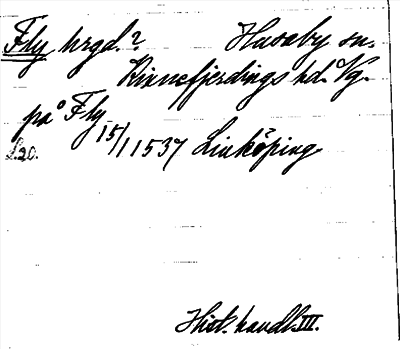 Fly hrgd.? Husaby sn.
Kinnefjerdings hd. Vg.
på Fly 15/1 1537 Linköping
L.20.
Hist. handl. III.